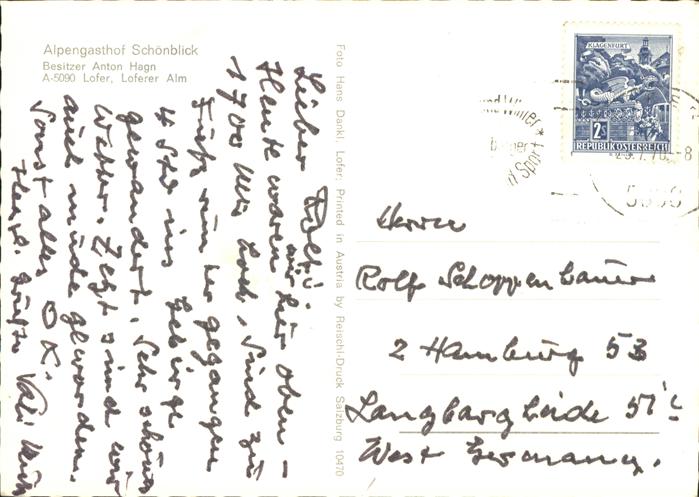 Alpengasthof Schönblick
Besitzer Anton Hagn
A-5090 Lofer, Loferer Alm
Lieber Rolf!
Heute waren wir hier oben –
1700 Mtr hoch, sind zu
Fuß rum her gegangen
4 Std ins Gebirge
gewandert. Sehr schönes
Wetter. Jetzt sind wir
auch müde geworden.
Sonst alles OK!
Herzl. Grüße
Foto Hans Dankl, Lofer; Printed in Austria by Reischl-Druck Salzburg 10470
KLAGENFURT
2 S
REPUBLIK ÖSTERREICH
und Winter
Sport
Herrn
Rolf Schoppenbauer
2 Hamburg 53
Langbargheide 51
West Germany.